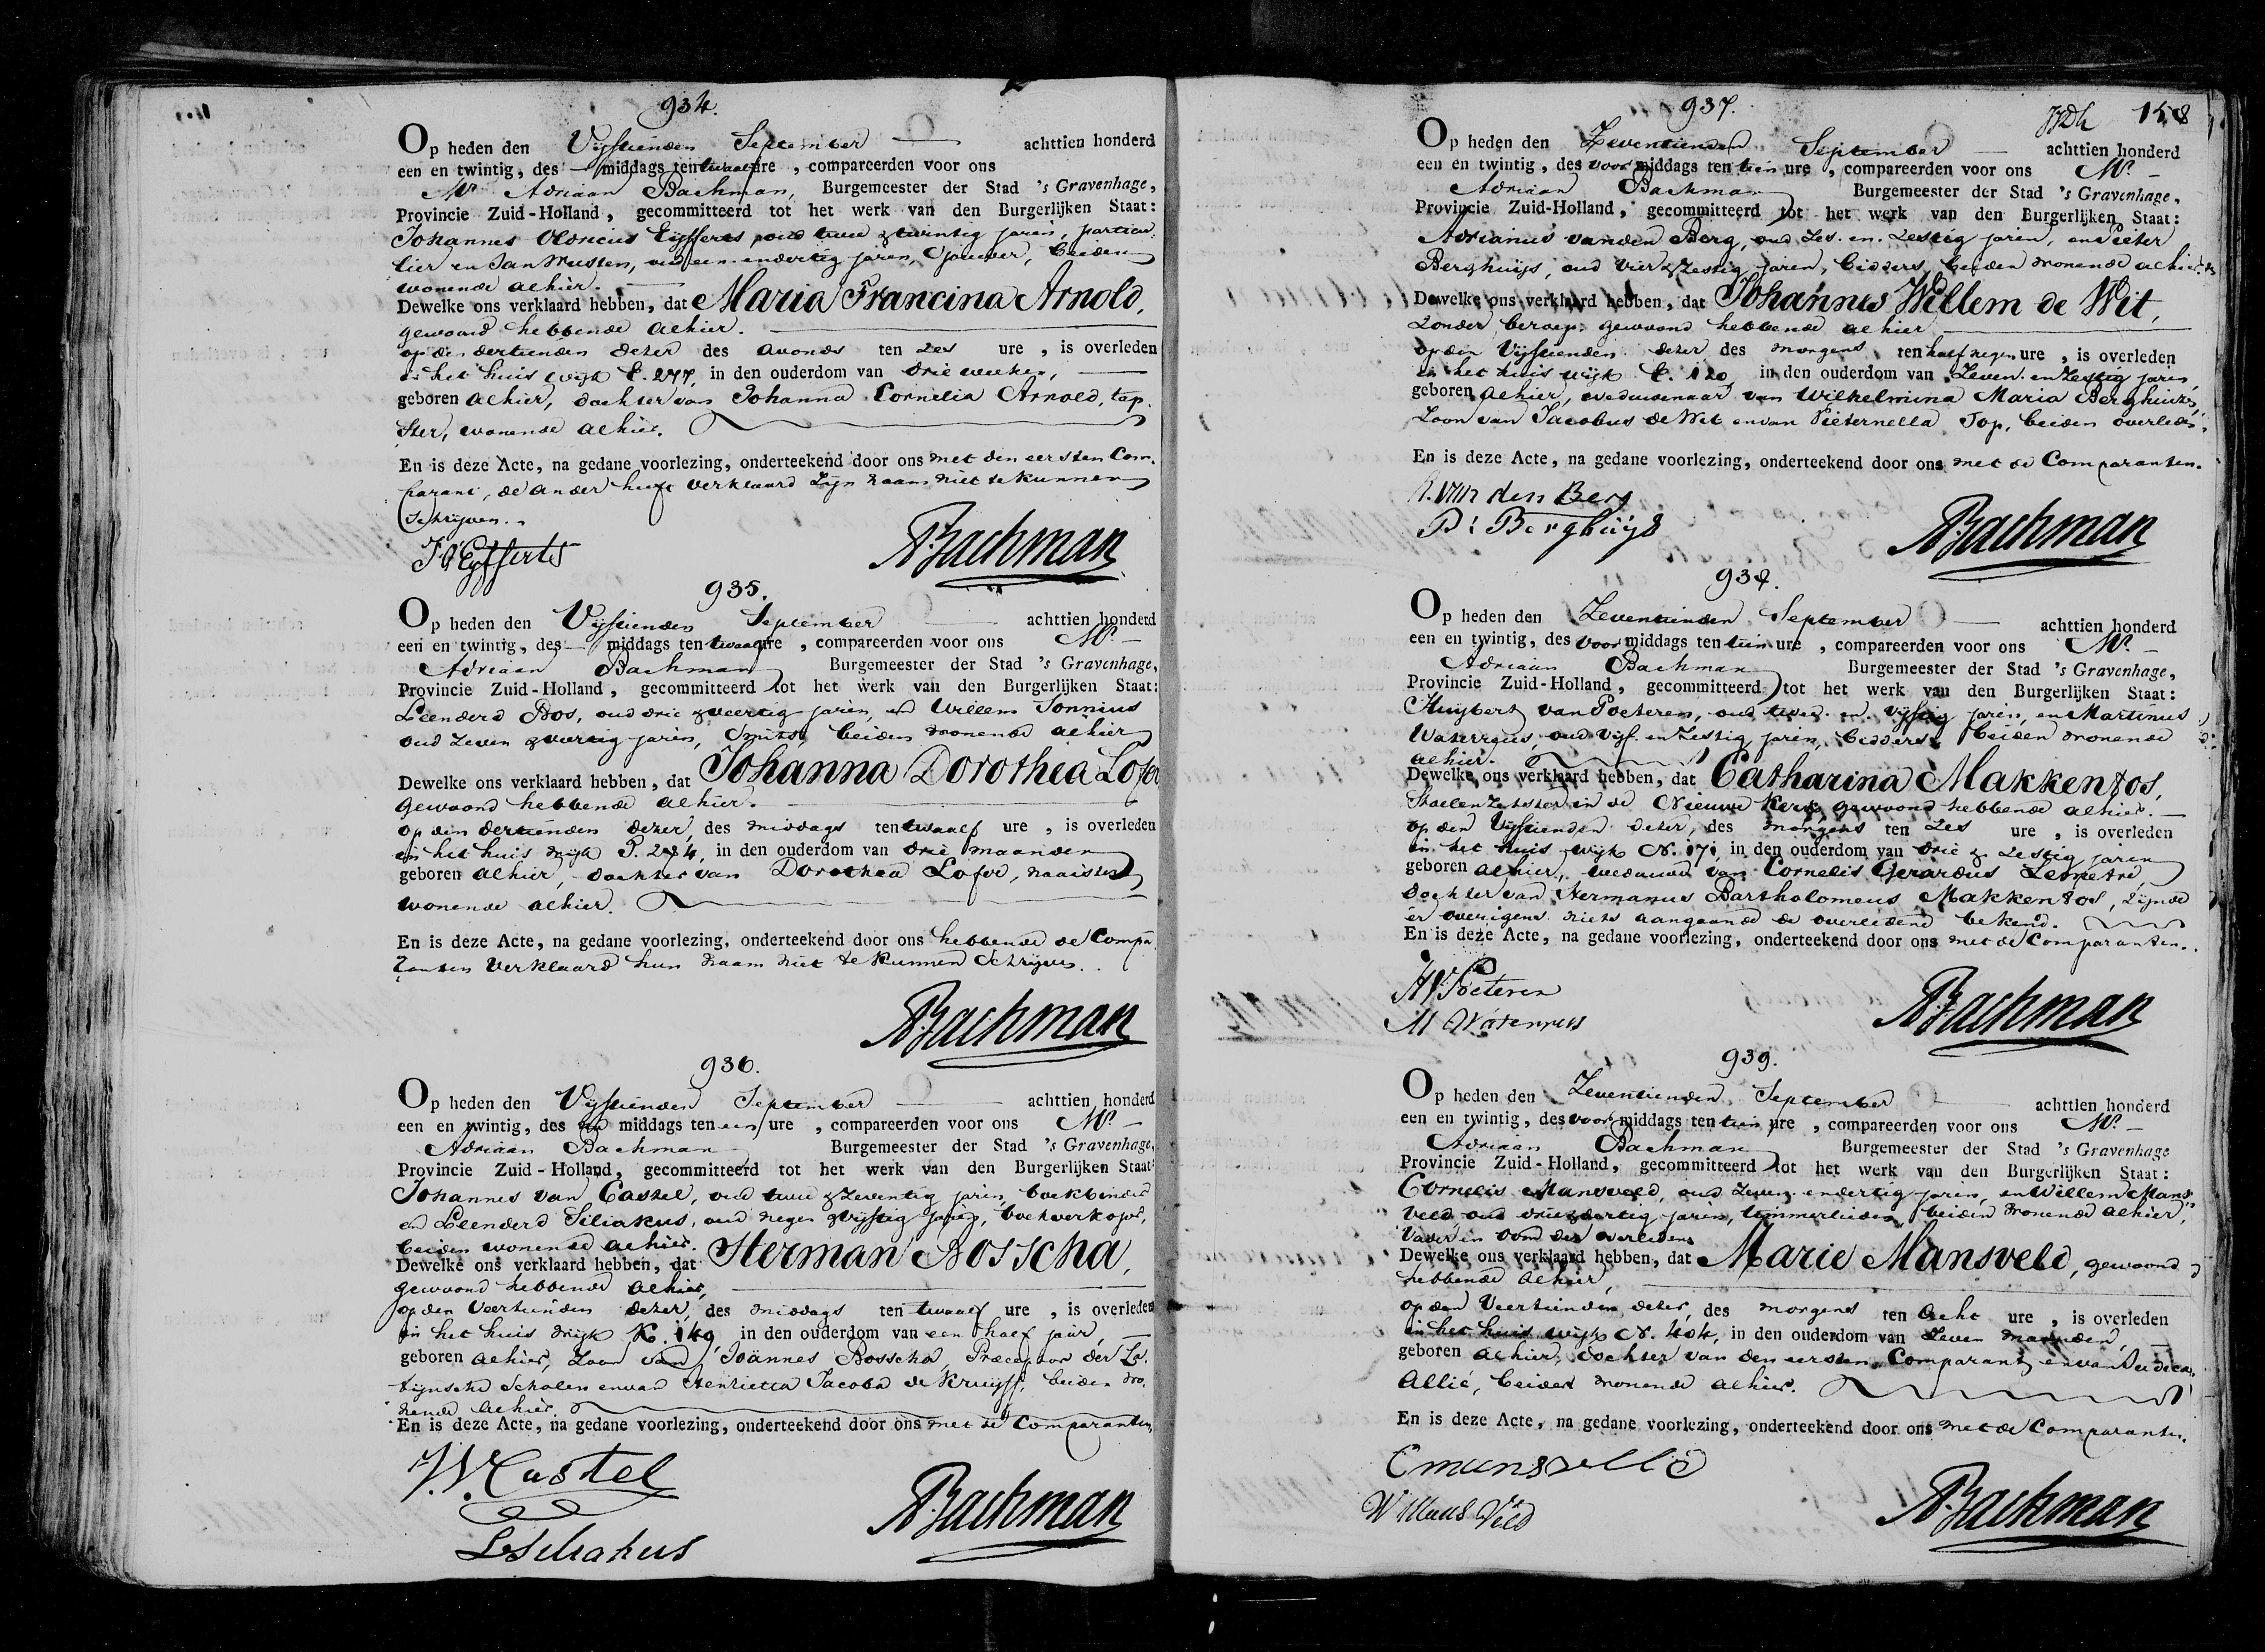 934.
Op heden den Vijftienden September achttien honderd
een en twintig, des — middags ten twaalf ure, compareerden voor ons
Mr. Adriaan Bachman, Burgemeester der Stad 's Gravenhage,
Provincie Zuid-Holland, gecommitteerd tot het werk van den Burgerlijken Staat:
Johannes Oldricus Eijfferts, oud twee & twintig jaren, particu-
lier en Jan Musten, oud een en dertig jaren, Sjouwer, beiden
wonende alhier.
Dewelke ons verklaard hebben, dat Maria Francina Arnold,
gewoond hebbende alhier.
op den dertienden dezer des avonds ten zes ure, is overleden
in het huis wijk E. 277, in den ouderdom van drie weeken,
geboren alhier, dochter van Johanna Cornelia Arnold, tap-
ster, wonende alhier.
En is deze Acte, na gedane voorlezing, onderteekend door ons met den eersten Com-
parant, de ander heeft verklaard zijn naam niet te kunnen
schrijven.
J O Eijfferts
ABachman
935.
Op heden den Vijftienden September achttien honderd
een en twintig, des — middags ten twaalf ure, compareerden voor ons Mr.
Adriaan Bachman Burgemeester der Stad 's Gravenhage,
Provincie Zuid-Holland, gecommitteerd tot het werk van den Burgerlijken Staat:
Leenderd Bos, oud drie & veertig jaren, en Willem Sonnius
oud zeven & veertig jaren, Smits, beiden wonende alhier
Dewelke ons verklaard hebben, dat Johanna Dorothea Lofer
gewoond hebbende alhier.
op den dertienden dezer, des middags ten twaalf ure, is overleden
in het huis wijk P. 284, in den ouderdom van drie maanden
geboren alhier, dochter van Dorothea Lofer, naaister
wonende alhier.
En is deze Acte, na gedane voorlezing, onderteekend door ons hebbende de Compa-
ranten verklaard hun naam niet te kunnen schrijven.
ABachman
936.
Op heden den Vijftienden September achttien honderd
een en twintig, des na middags ten een ure, compareerden voor ons Mr.
Adriaan Bachman Burgemeester der Stad 's Gravenhage,
Provincie Zuid-Holland, gecommitteerd tot het werk van den Burgerlijken Staat:
Johannes van Castel, oud twee & zeventig jaren, boekbinder
en Leenderd Siliakus, oud negen & vijftig jaren, boekverkoper,
beiden wonende alhier.
Dewelke ons verklaard hebben, dat Herman Bosscha,
gewoond hebbende alhier,
op den veertienden dezer, des middags ten twaalf ure, is overleden
in het huis wijk K. 149, in den ouderdom van een half jaar,
geboren alhier, zoon van Joännes Bosscha, Præceptor der La-
tijnsche Scholen en van Henrietta Jacoba de Kruijff, beiden wo-
nende alhier.
En is deze Acte, na gedane voorlezing, onderteekend door ons met de Comparanten,
J.V. Castel
L Siliakus
ABachman
937.
158
Op heden den Zeventienden September achttien honderd
een en twintig, des voor middags ten tien ure, compareerden voor ons Mr.
Adriaan Bachman Burgemeester der Stad 's Gravenhage,
Provincie Zuid-Holland, gecommitteerd tot het werk van den Burgerlijken Staat:
Adrianus van den Berg, oud zes en zestig jaren, en Pieter
Berghuijs, oud vier & zestig jaren, bidders, beiden wonende alhier
Dewelke ons verklaard hebben, dat Johannes Willem de Wit,
zonder beroep, gewoond hebbende alhier
op den Vijftienden dezer des morgens ten half negen ure, is overleden
in het huis wijk E. 120 in den ouderdom van zeven en zestig jaren,
geboren alhier, weduwenaar van Wilhelmina Maria Berghuizen,
Zoon van Jacobus de Wit en van Pieternella Top, beiden overleden.
En is deze Acte, na gedane voorlezing, onderteekend door ons met de Comparanten.
A. van den Berg
P: Berghuijs
ABachman
938.
Op heden den Zeventienden September achttien honderd
een en twintig, des voor middags ten tien ure, compareerden voor ons Mr.
Adriaan Bachman Burgemeester der Stad 's Gravenhage,
Provincie Zuid-Holland, gecommitteerd tot het werk van den Burgerlijken Staat:
Huijbert van Poeteren, oud twee en vijftig jaren, en Martinus
Waterreus, oud vijf en zestig jaren, bidders, beiden wonende
alhier.
Dewelke ons verklaard hebben, dat Catharina Makkentos,
Stoelenzetster in de Nieuwe Kerk, gewoond hebbende alhier.
op den Vijftienden dezer, des morgens ten zes ure, is overleden
in het huis wijk N. 171, in den ouderdom van drie & zestig jaren
geboren alhier, weduwe van Cornelis Gerardus Lemetré,
dochter van Hermanus Bartholomeus Makkentos, zijnde
er overigens niets aangaande de overledene bekend.
En is deze Acte, na gedane voorlezing, onderteekend door ons met de Comparanten.
H V Poeteren
M Waterreus
ABachman
939.
Op heden den Zeventienden September achttien honderd
een en twintig, des voor middags ten tien ure, compareerden voor ons Mr.
Adriaan Bachman Burgemeester der Stad 's Gravenhage
Provincie Zuid-Holland, gecommitteerd tot het werk van den Burgerlijken Staat:
Cornelis Mansveld, oud zeven en dertig jaren, en Willem Mans-
veld oud drie & dertig jaren, timmerlieden, beiden wonende alhier,
Vader en oom der overledene
Dewelke ons verklaard hebben, dat Marie Mansveld, gewoond
hebbende alhier,
op den veertienden dezer, des morgens ten acht ure, is overleden
in het huis wijk N. 404, in den ouderdom van zeven maanden,
geboren alhier, dochter van den eersten Comparant en van
Allié, beiden wonende alhier.
En is deze Acte, na gedane voorlezing, onderteekend door ons met de Comparanten.
C mansveld
W Mans Veld
ABachman